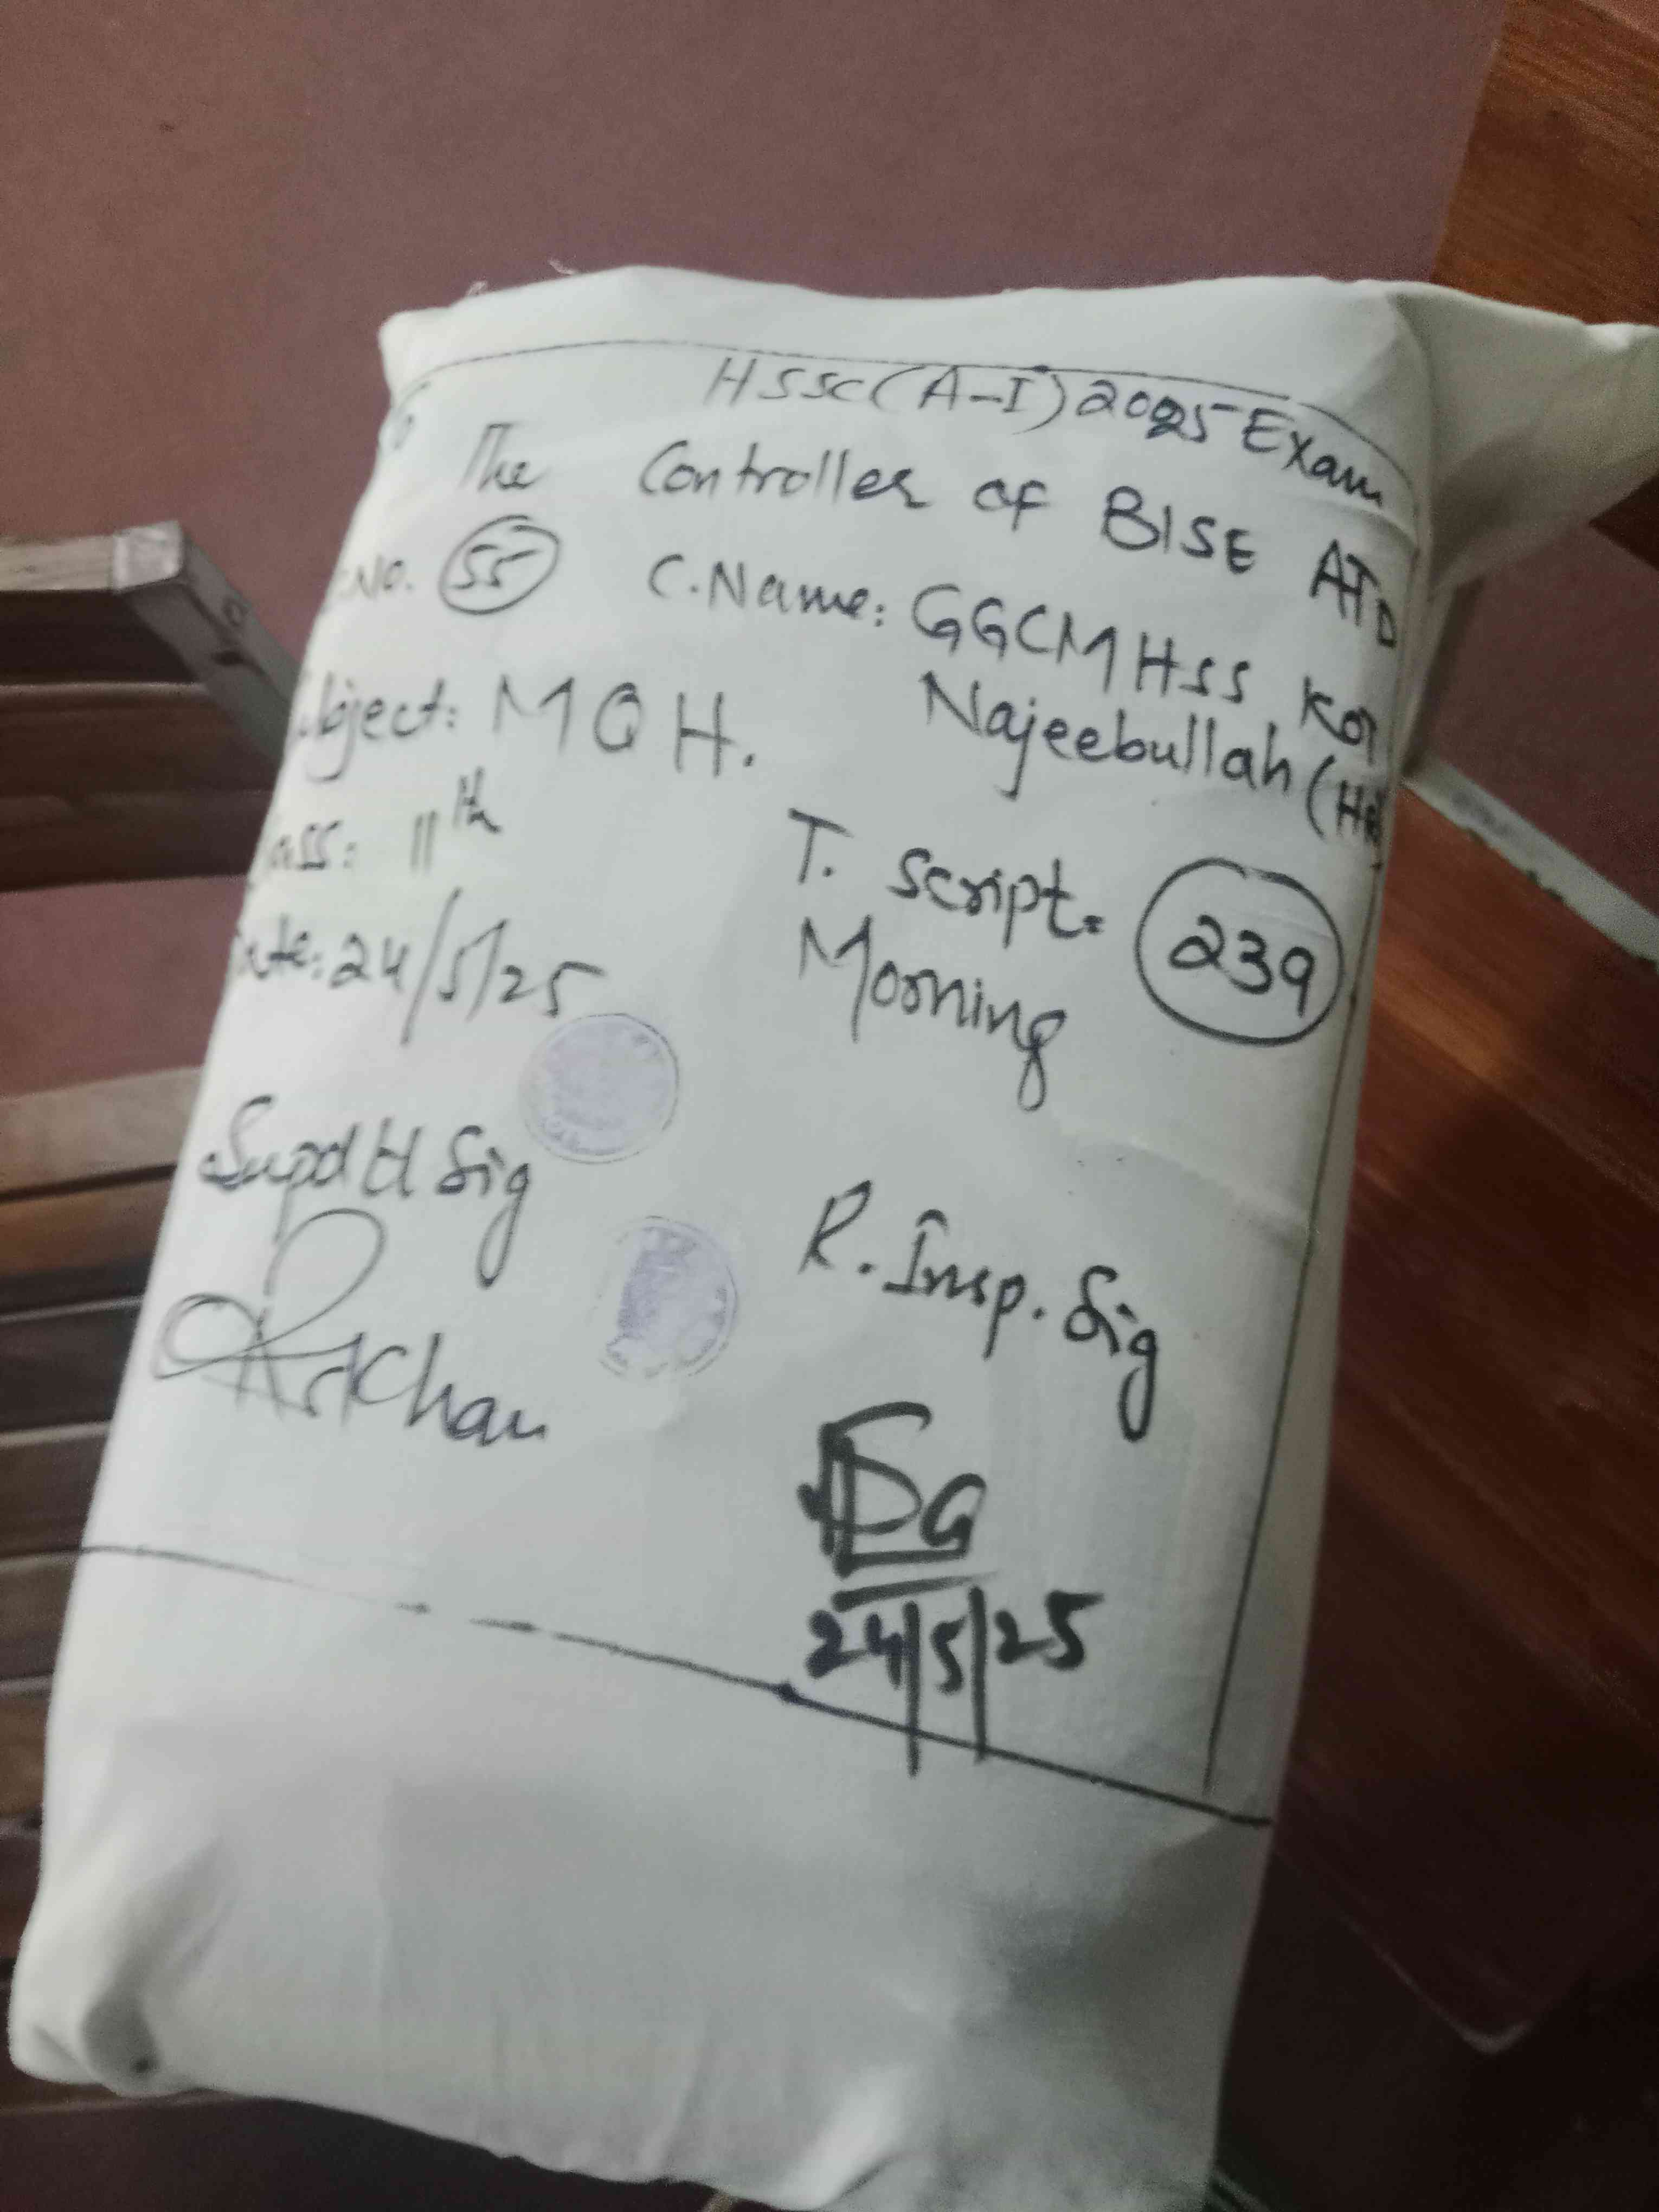 HSSC (A-I) 2025 Exam
The Controller of BISE ATD
No. 55 C.Name: GGCMHSS Kot
Najeebullah (H
Subject: MQH.
Class: 11th
T. Script= 239
Date: 24/5/25 Morning
Supdtt Sig
R. Insp. Sig
Khan
24/5/25